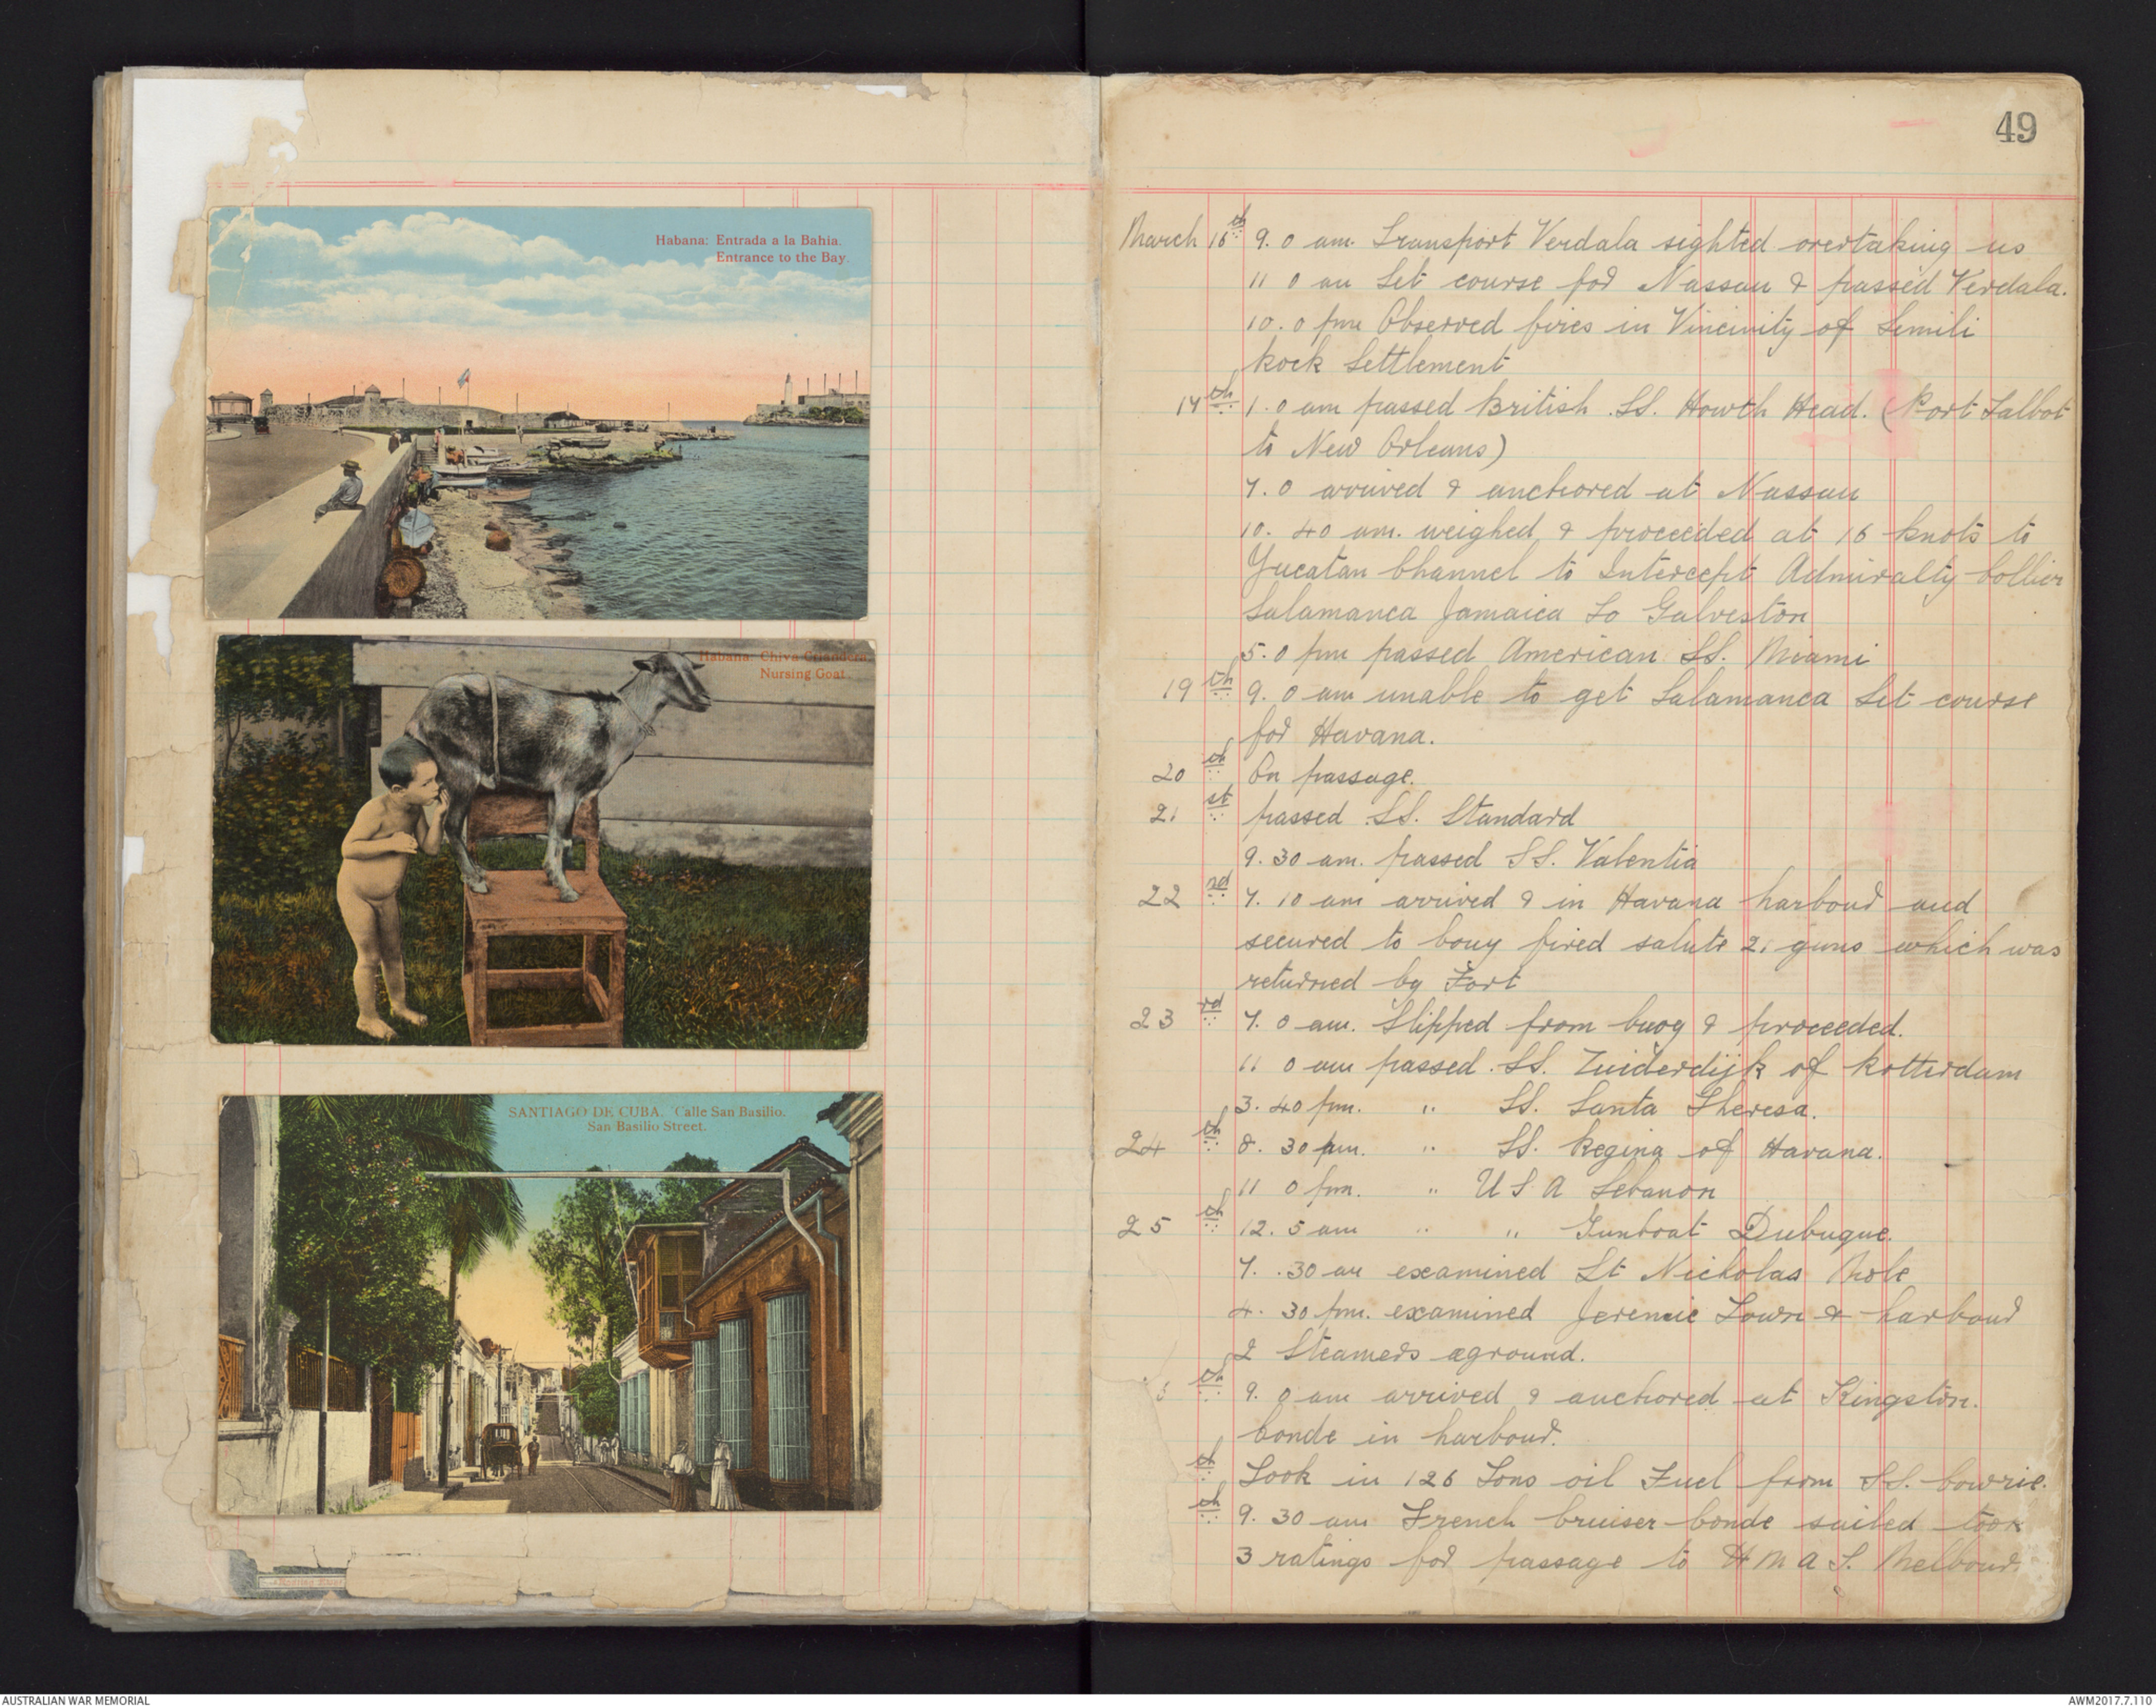 Habana: Entrada a la Bahia.
Entrance to the Bay.
Habana: Chiva Criandera.
Nursing Goat.
SANTIAGO DE CUBA. Calle San Basilio.
San Basilio Street.
49
March 16th 9. 0 am. Transport Verdala sighted overtaking us
11 0 am Set course for Nassau & passed Verdala.
10. 0 pm Observed fires in Vincinity of Simili
Rock Settlement
17th 1. 0 am passed British SS. Howth Head. (Port Talbot
to New Orleans)
7. 0 arrived & anchored at Nassau
10. 40 am. weighed & proceeded at 16 knots to
Yucatan Channel to Intercept Admiralty Collier
Salamanca Jamaica To Galveston
5. 0 pm passed American SS. Miami
19th 9. 0 am unable to get Salamanca Set course
for Havana.
20th On passage.
21st passed SS. Standard
9. 30 am. passed SS. Valentia
22nd 7. 10 am arrived & in Havana harbour and
secured to bouy fired salute 21 guns which was
returned by Fort
23rd 7. 0 am. Slipped from buoy & proceeded.
11 0 am passed SS. Zuiderdijk of Rotterdam
3. 40 pm. " SS. Santa Theresa.
24th 8. 30 pm. " SS. Regina of Havana.
11 0 pm. " U S A Lebanon
25th 12. 5 am " " Gunboat Dubuque.
7. 30 am examined St Nicholas Mole
4. 30 pm. examined Jeremie Town & harbour
2 Steamers aground.
th 9. 0 am arrived & anchored at Kingston.
Conde in harbour.
th Took in 126 Tons oil Fuel from SS. Cowrie.
th 9. 30 am French Cruiser Conde sailed took
3 ratings for passage to H M A S. Melbour.
AUSTRALIAN WAR MEMORIAL
AWM2017.7.110